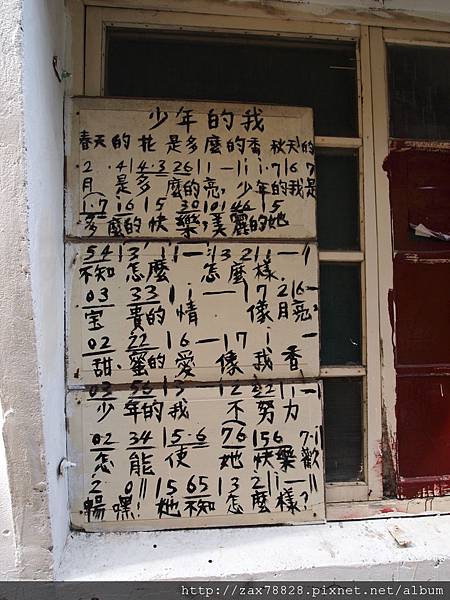 少年的我
春天的花 是多麼的香 秋天的
2 · 4|4·3 26|i — |i i·7|6 7
月 是多麼的亮, 少年的我是
1·7|i6|5 30|0146|5
多麼的快樂,美麗的她
54|3 i|—|3 2|1 — ||
不知怎麼 怎麼樣.
03 33|i — |7 2|6 —
寶 貴的情 像月亮,
02 22|6 — |7 i —
甜.蜜的愛 像我香
03 56|3 12 32|1 —
少年的我 不努力
02 34|5·6 76|56 7·i
怎能使 她快樂歡
2 0||5 65|3 2|1 — ||
暢嘿! 她不知怎麼樣?
http://zax78828.pixnet.net/album